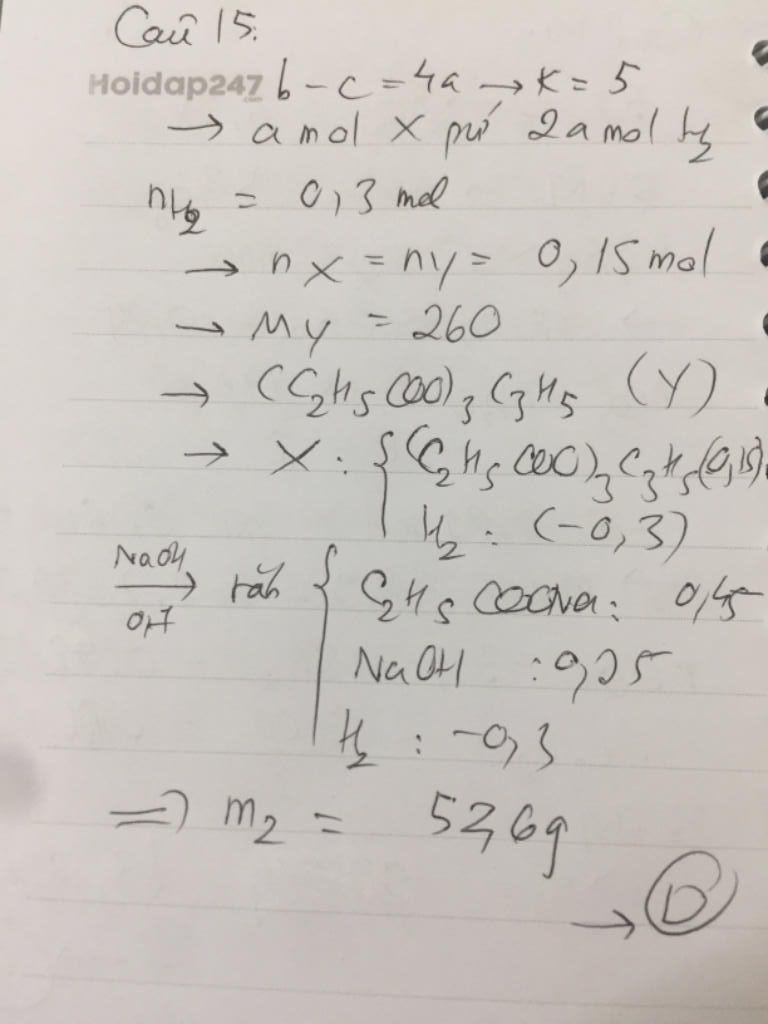 Câu 15.
Hoidap247.com b - c = 4a → K = 5
→ a mol X pứ 2a mol H₂
nH₂ = 0,3 mol
→ nX = nY = 0,15 mol
→ MY = 260
→ (C₂H₅COO)₃C₃H₅ (Y)
→ X : { (C₂H₅COO)₃C₃H₅ (0,15)
H₂ : (-0,3)
NaOH 0,7 → rắn { C₂H₅COONa : 0,45
NaOH : 0,25
H₂ : -0,3
=> m₂ = 52,6g
→ D